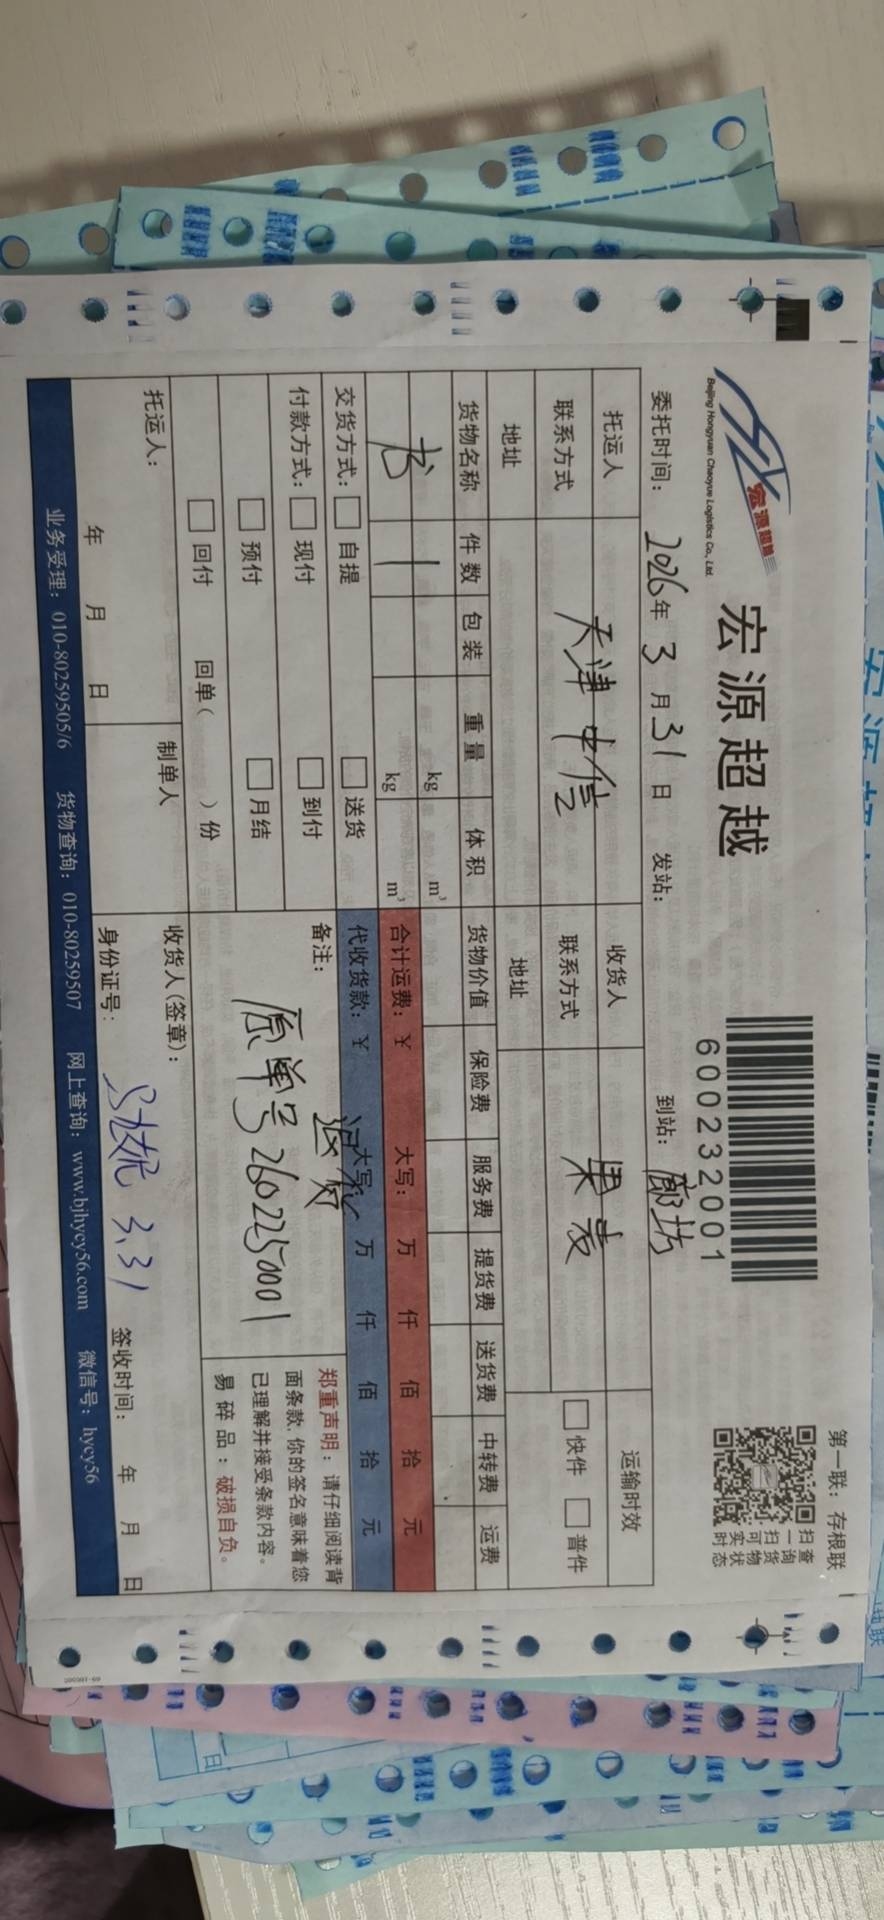 第一联：存根联
宏源超越
Beijing Hongyuan Chaoyue Logistics Co., Ltd.
宏源超越
600232001
扫一扫可实时
查询货物状态
委托时间：2026年3月31日 发站： 到站：廊坊
托运人 收货人 运输时效
联系方式 天津中信 联系方式 快件 普件
地址 地址
货物名称 件数 包装 重量 体积 货物价值 保险费 服务费 提货费 送货费 中转费 运费
书 1 kg m³
1 kg m³
合计运费：￥ 大写： 万 仟 佰 拾 元
交货方式： 自提 送货 代收货款：￥ 大写： 万 仟 佰 拾 元
付款方式： 现付 到付
预付 月结
回付 回单（ ）份
备注： 退货
原单号2602250001
郑重声明：请仔细阅读背
面条款，你的签名意味着您
已理解并接受条款内容。
易碎品：破损自负。
托运人： 制单人 收货人(签章)：
年 月 日 身份证号： 3.31 签收时间： 年 月 日
业务受理：010-80259505/6 货物查询：010-80259507 网上查询：www.bjhycy56.com 微信号：hycy56